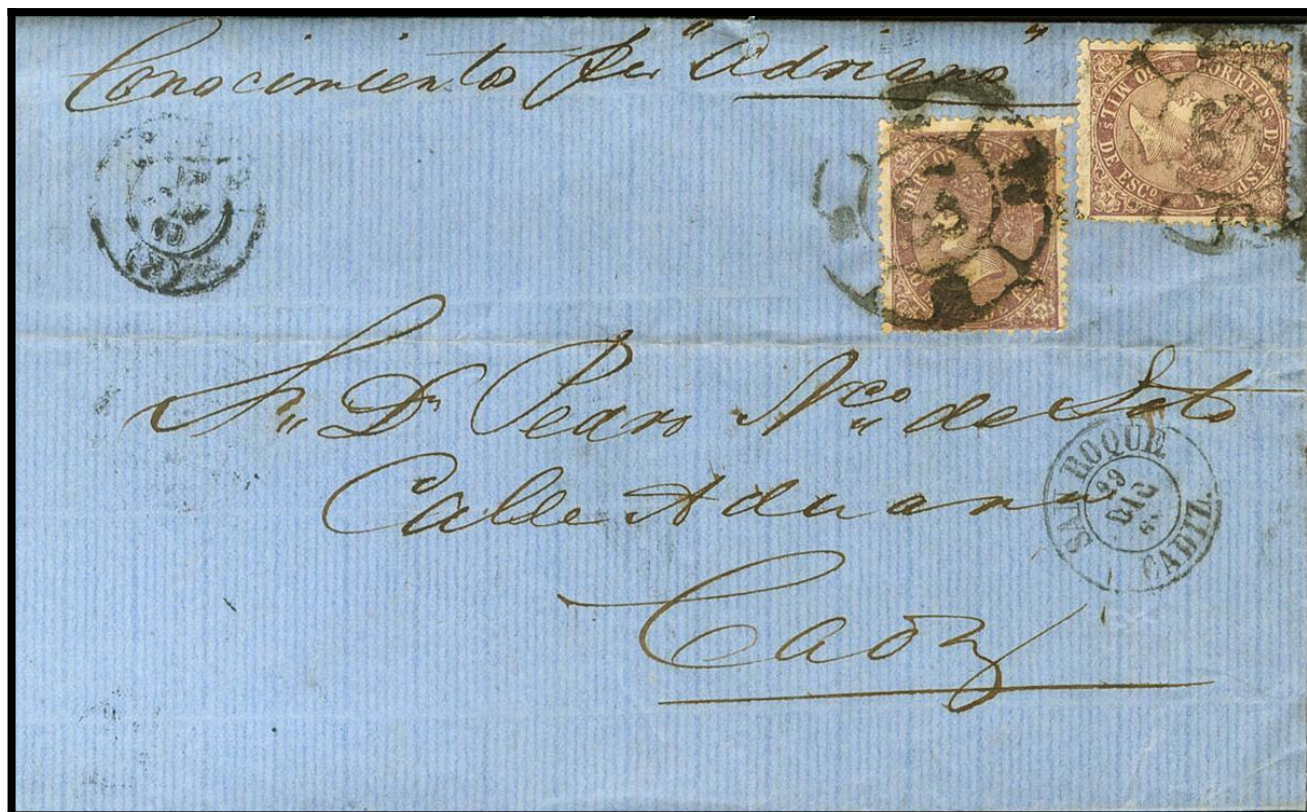 Conocimiento per "Adriano"
CORREOS DE ESPAÑA
MIL.S DE ESCO
Sr. Dn Pedro Nco de Soto
Calle Aduana
Cadiz
SAN ROQUE.
DIC
CADIZ.